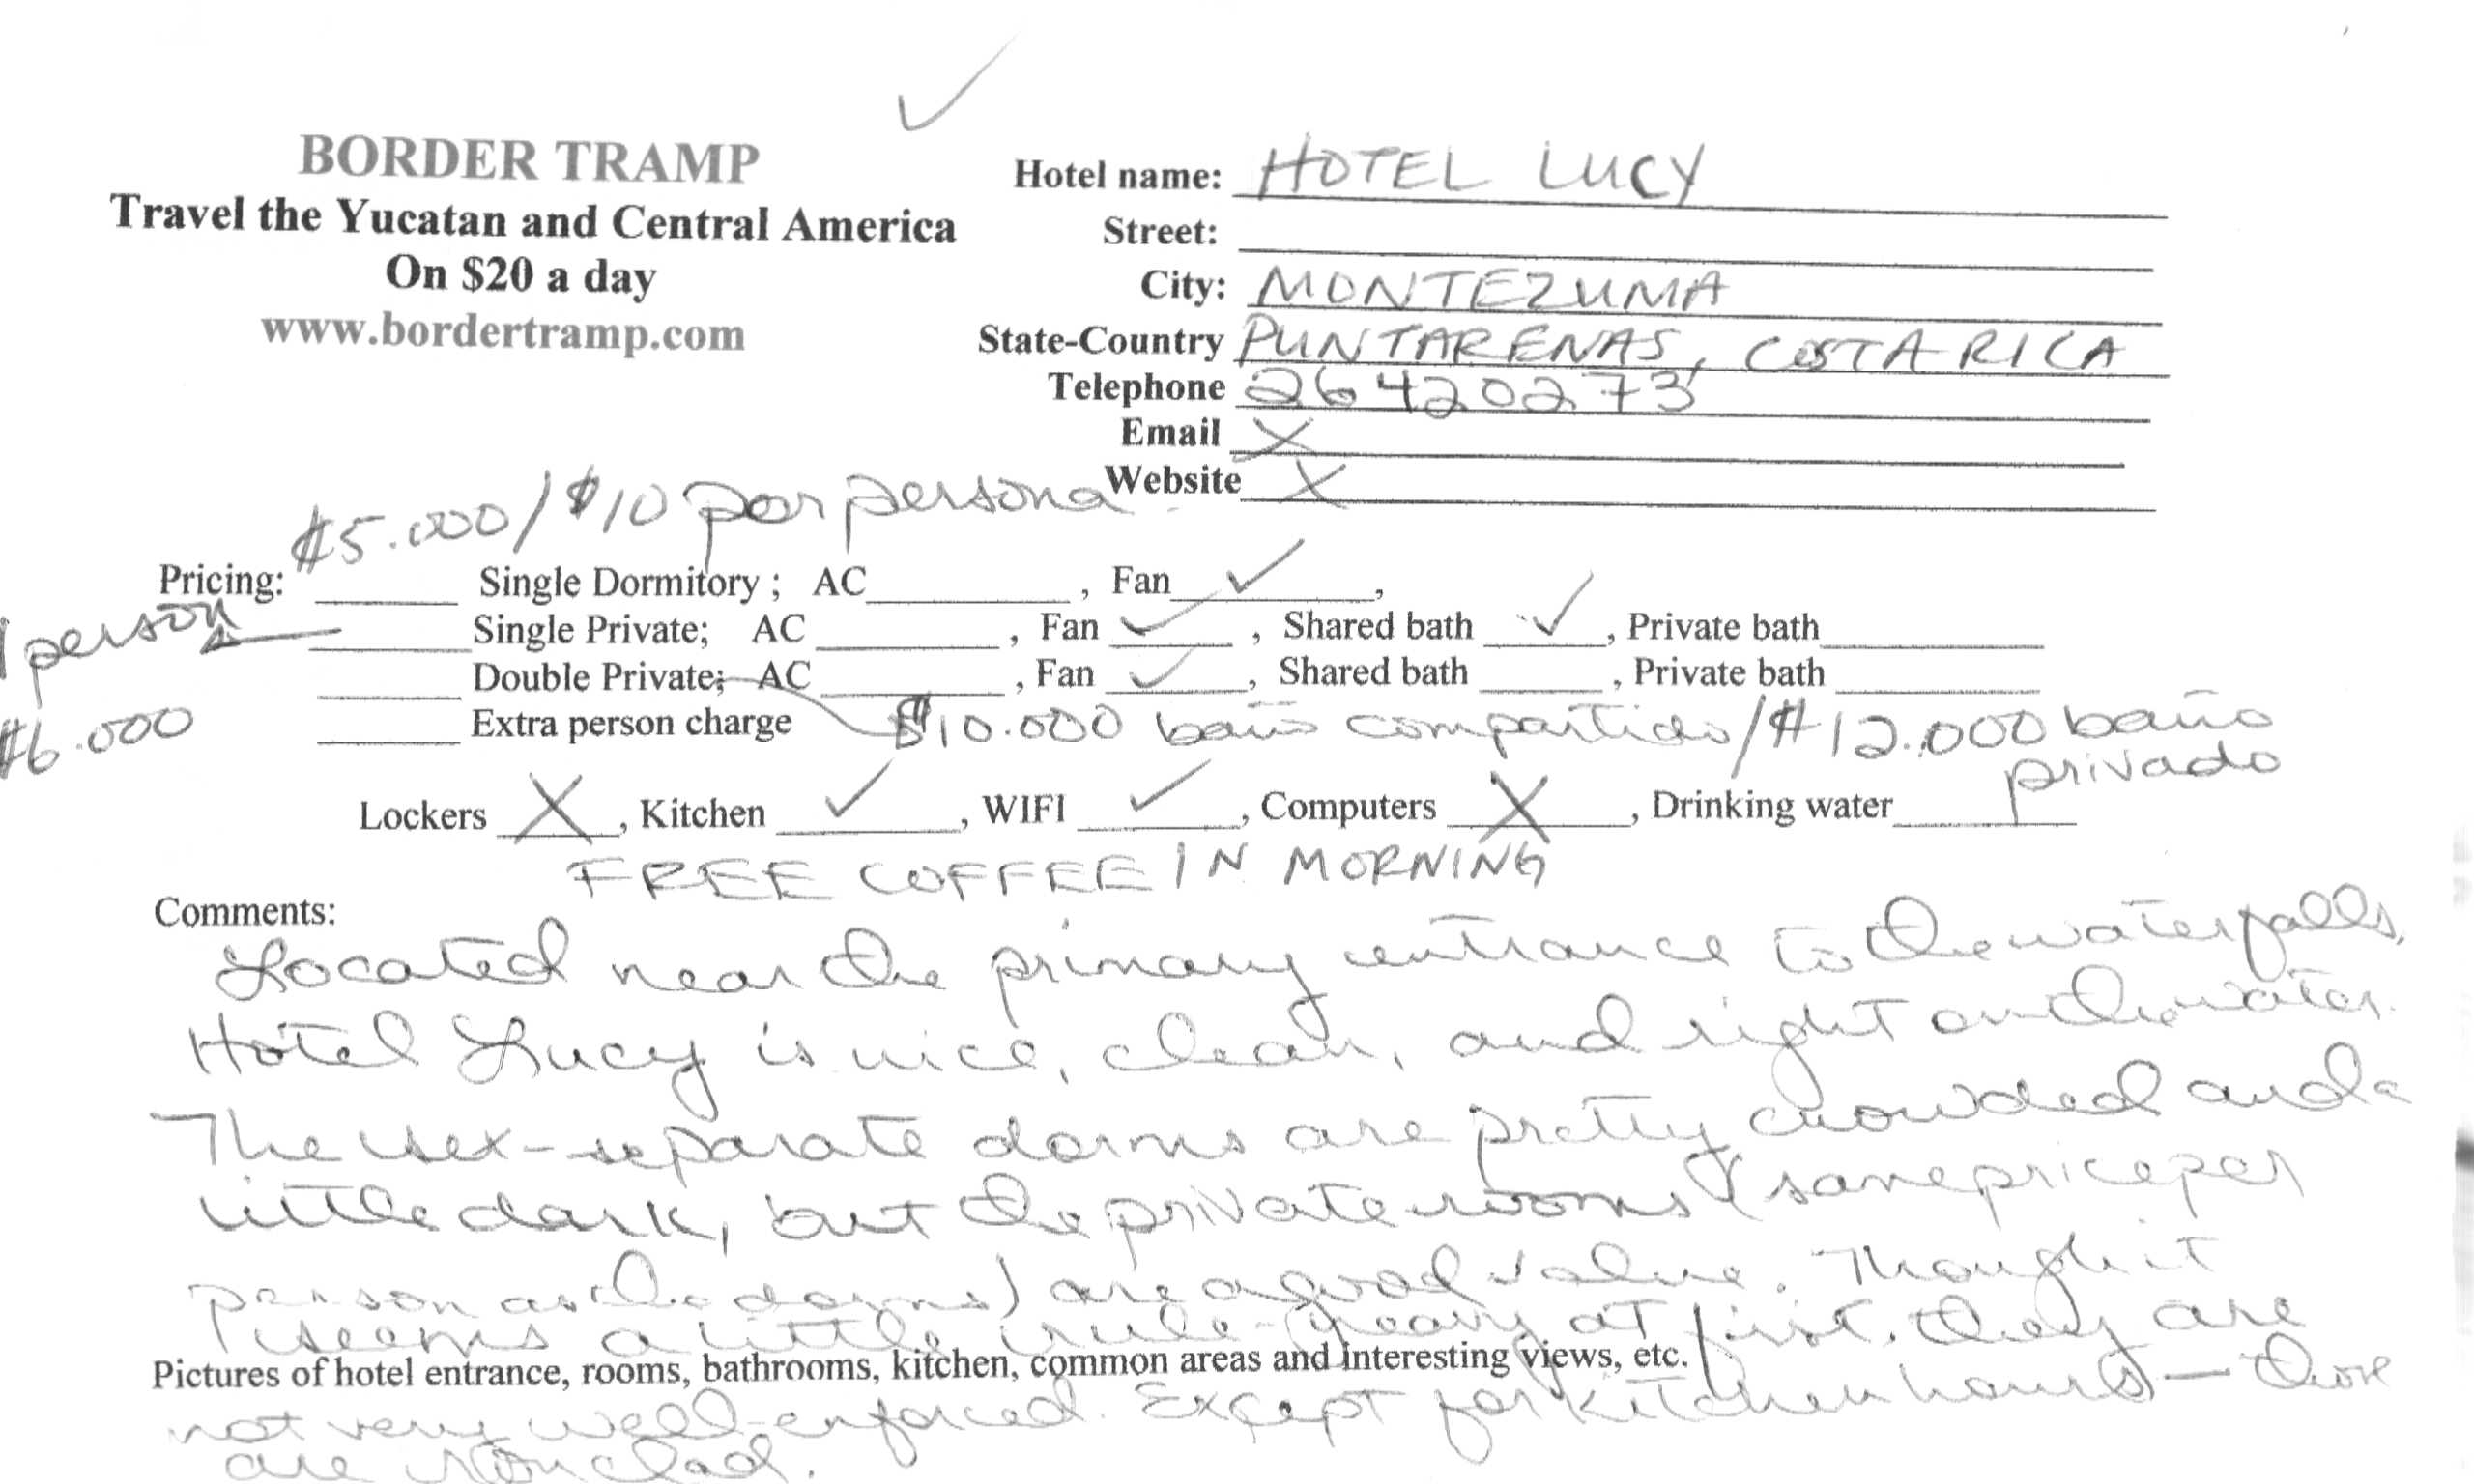 BORDER TRAMP
Travel the Yucatan and Central America
On $20 a day
www.bordertramp.com
Hotel name: HOTEL LUCY
Street:
City: MONTEZUMA
State-Country PUNTARENAS, COSTA RICA
Telephone 26420273
Email X
Website X
₡5.000/$10 por persona
Pricing: Single Dormitory; AC , Fan ✓,
1 person
Single Private; AC , Fan ✓, Shared bath ✓, Private bath
Double Private; AC , Fan ✓, Shared bath , Private bath
₡6.000
Extra person charge ₡10.000 baño compartido/₡12.000 baño
privado
Lockers X, Kitchen ✓, WIFI ✓, Computers X, Drinking water
FREE COFFEE IN MORNING
Comments:
Located near the primary entrance to the waterfalls,
Hotel Lucy is nice, clean, and right on the water.
The sex-separate dorms are pretty crowded and a
little dark, but the private rooms (same price per
person as the dorms) are a good value. Though it
seems a little rule-heavy at first, they are
Pictures of hotel entrance, rooms, bathrooms, kitchen, common areas and interesting views, etc.
not very well-enforced. Except for kitchen hours — those
are ironclad.